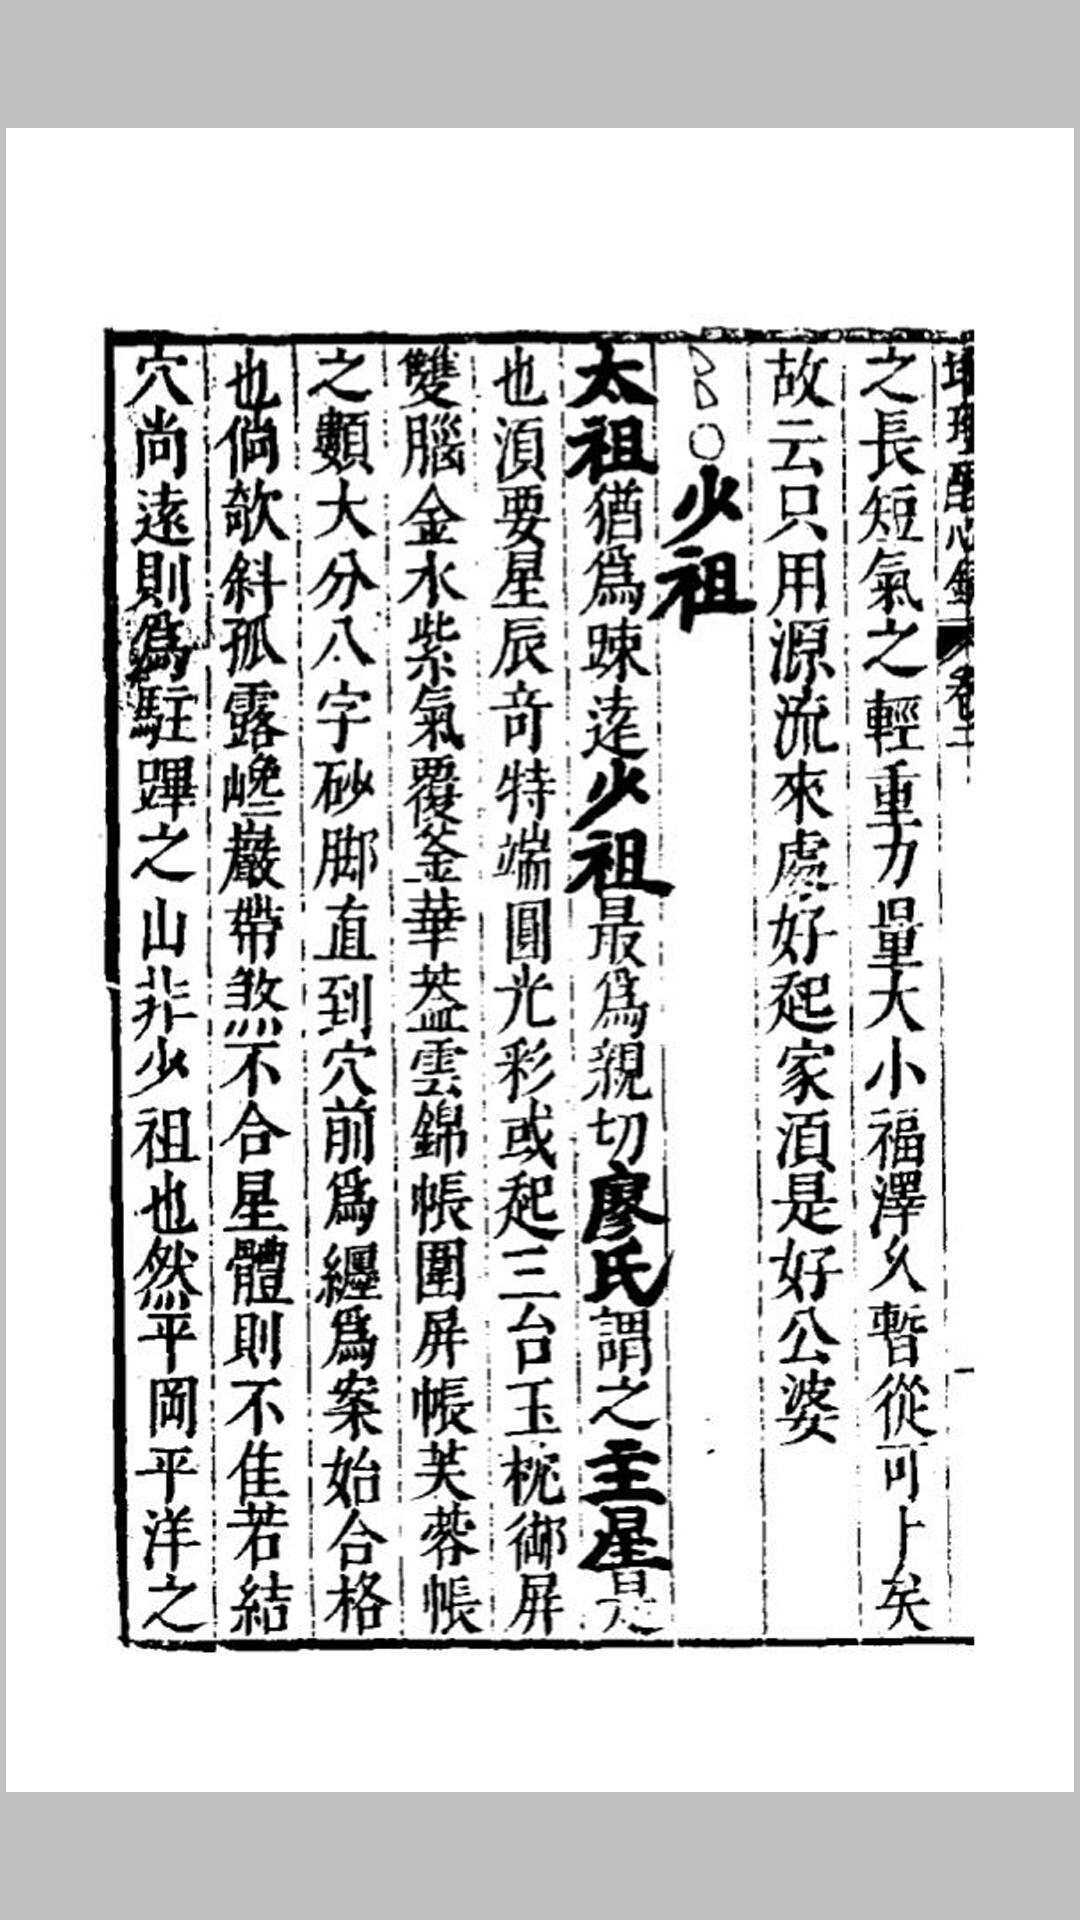 地理醒心錄 卷二
之長短氣之輕重力量大小福澤久暫從可卜矣
故云只用源流來處好起家湏是好公婆
○少祖
太祖猶爲踈逺少祖最爲親切廖氏謂之主星是
也湏要星辰竒特端圓光彩或起三台玉枕御屏
雙腦金水紫氣覆釜華葢雲錦帳圍屏帳芙蓉帳
之類大分八字砂脚直到穴前爲纏爲案始合格
也倘欹斜孤露巉巖帶煞不合星體則不佳若結
穴尚遠則爲駐蹕之山非少祖也然平岡平洋之